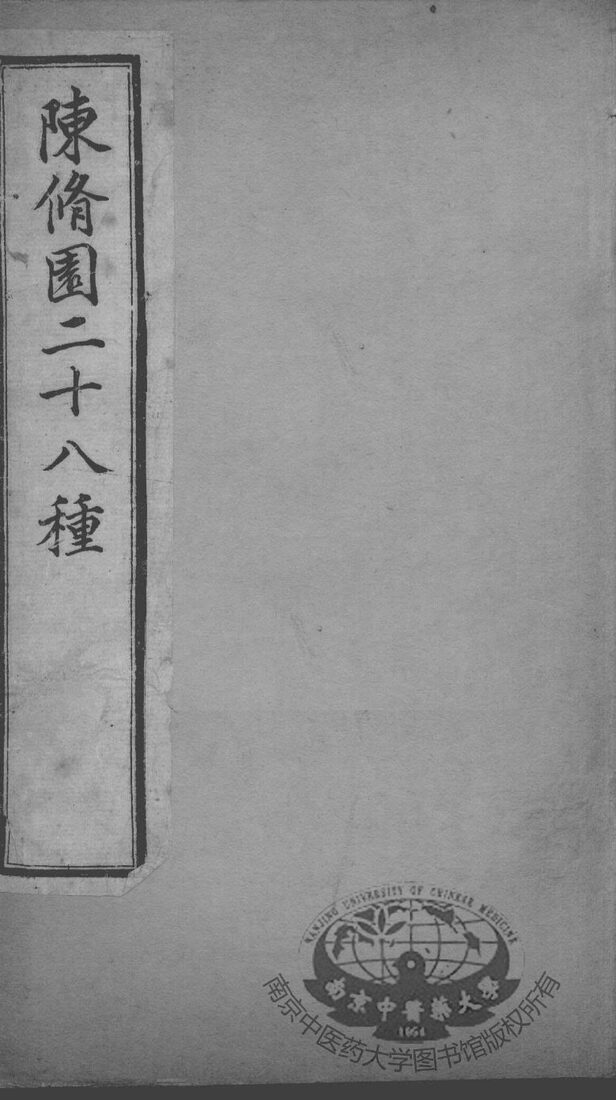 陳脩園二十八種
NANJING UNIVERSITY OF CHINESE MEDICINE
南京中醫藥大學
1954
南京中医药大学图书馆版权所有